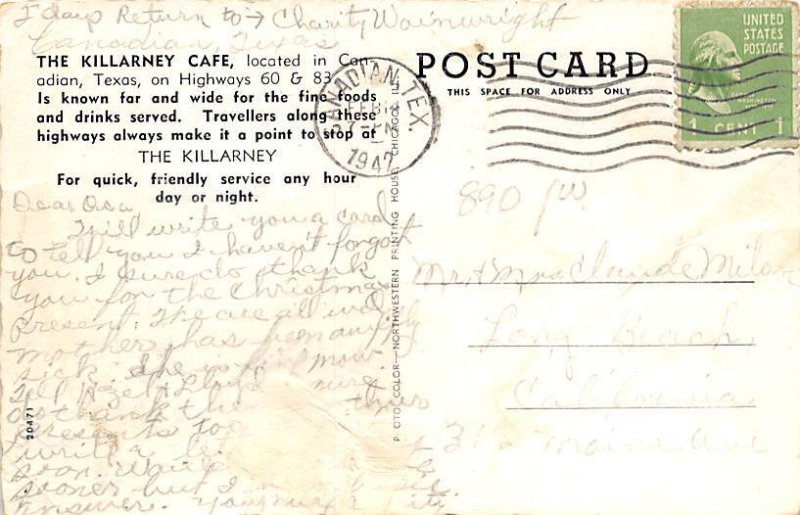 Return to → Charity Wainwright
Canadian, Texas
THE KILLARNEY CAFE, located in Can-
adian, Texas, on Highways 60 & 83
Is known far and wide for the fine foods
and drinks served. Travellers along these
highways always make it a point to stop at
THE KILLARNEY
For quick, friendly service any hour
day or night.
POST CARD
THIS SPACE FOR ADDRESS ONLY
CANADIAN, TEX.
FEB
1942
UNITED
STATES
POSTAGE
GEORGE
WASHINGTON
1 CENT 1
PHOTO COLOR—NORTHWESTERN PRINTING HOUSE, CHICAGO, ILL.
20471
Dear
I will write you a card
to tell you I haven't forgot
you. I sure do thank
you for the Christmas
present. The are all well
mother has been awfully
sick. She is now.
Tell Hazel & sure
thank the
presents too
write a
soon. 
sooner but I
answer.
890
Mr & Mrs Claude
Long Beach
California
312 Maine Ave